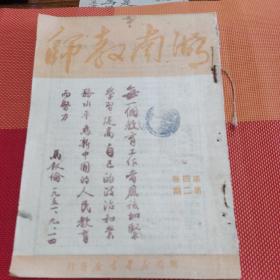 湖南教師
每一個教育工作者應該加緊
學習提高自己的政治和業
務水平為新中國的人民教育
而努力
馬敘倫 一九五一、九、一四